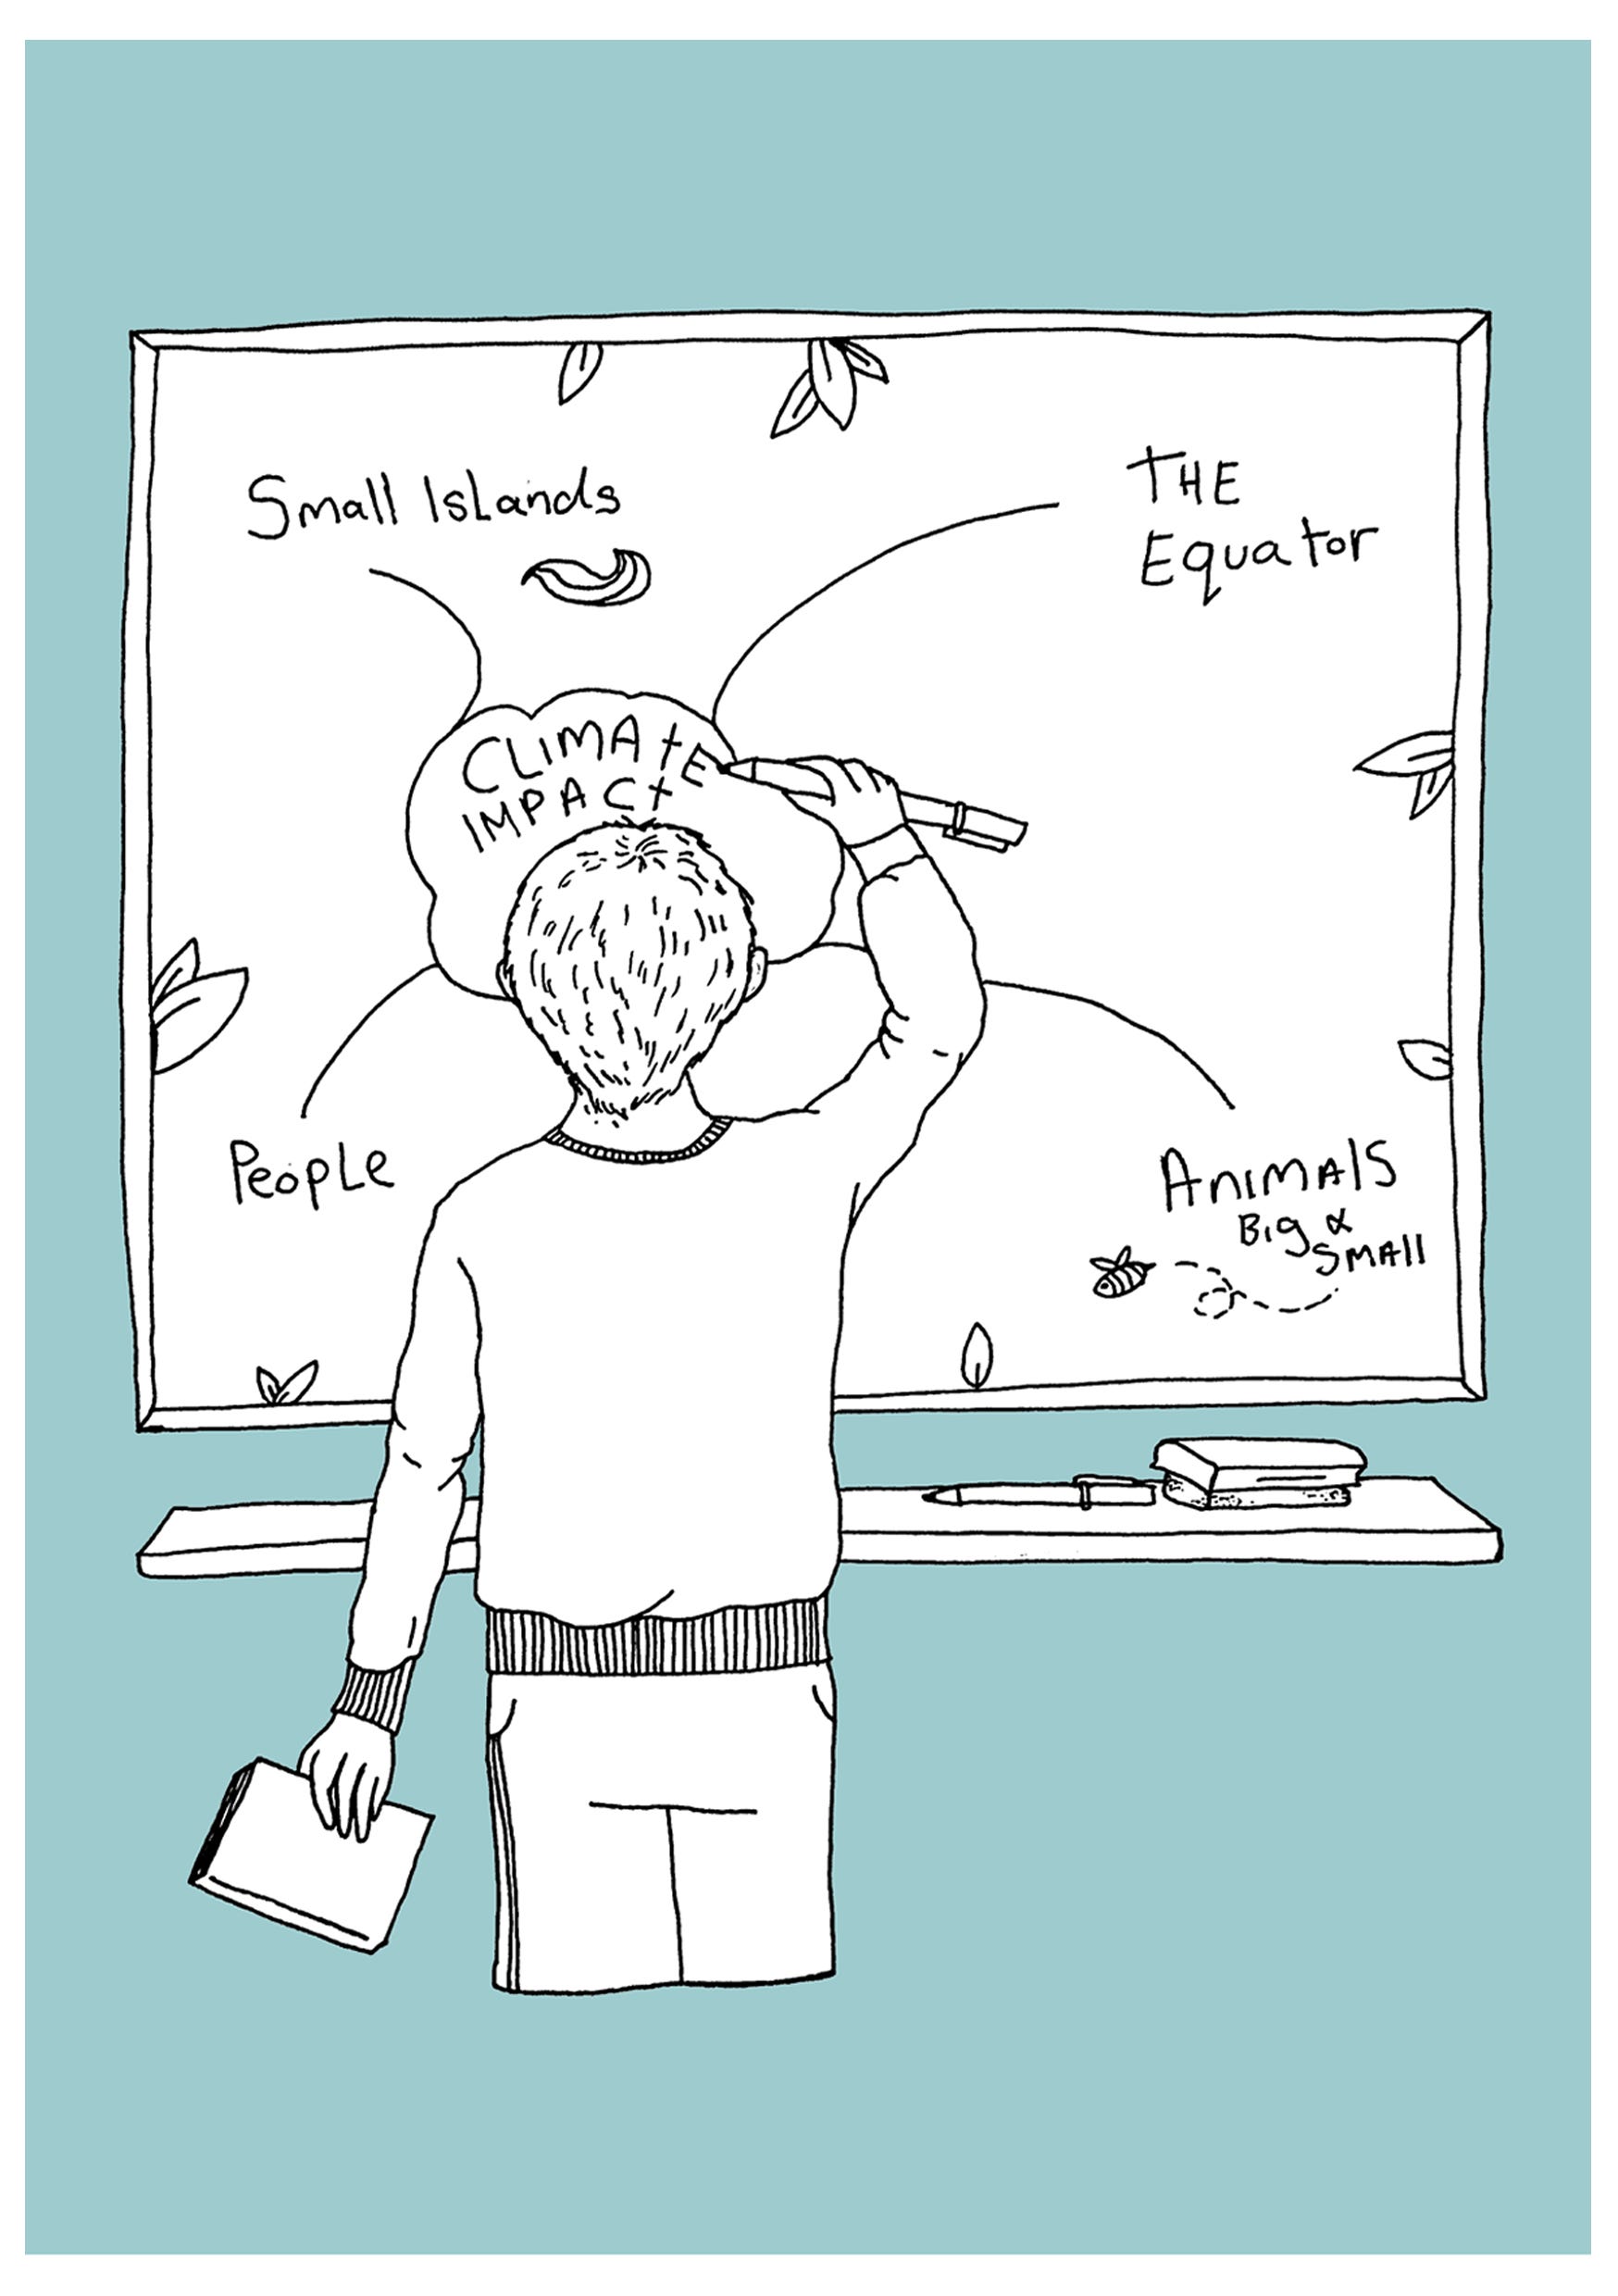 Small Islands
THE
Equator
CLIMATE
IMPACT
People
Animals
Big &
Small